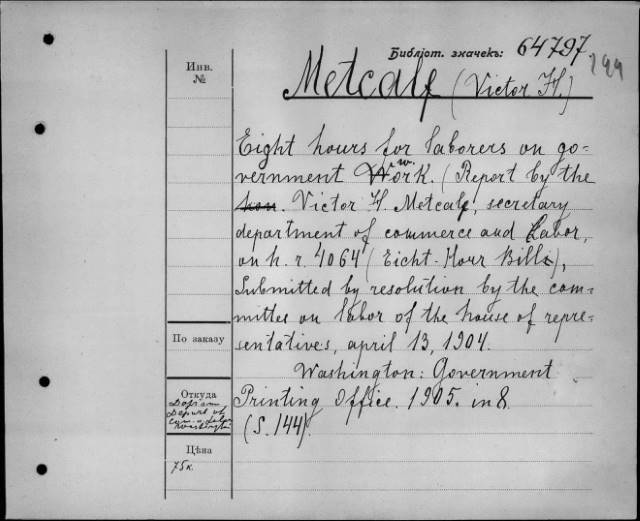 Библіот. значекъ: 64797
199
Инв.
№
Metcalf (Victor H.)
Eight hours for laborers on go-
vernment work. (Report by the
hon. Victor H. Metcalf, secretary
department of commerce and Labor,
on h. r. 4064 (Eicht-Hour Bill),
Submitted by resolution by the com-
mittes on labor of the house of repre-
sentatives, april 13, 1904.
Washington: Government
Printing Office. 1905. in 8.
(S. 144).
По заказу
Откуда
Depart of
Washington
Цѣна
75к.